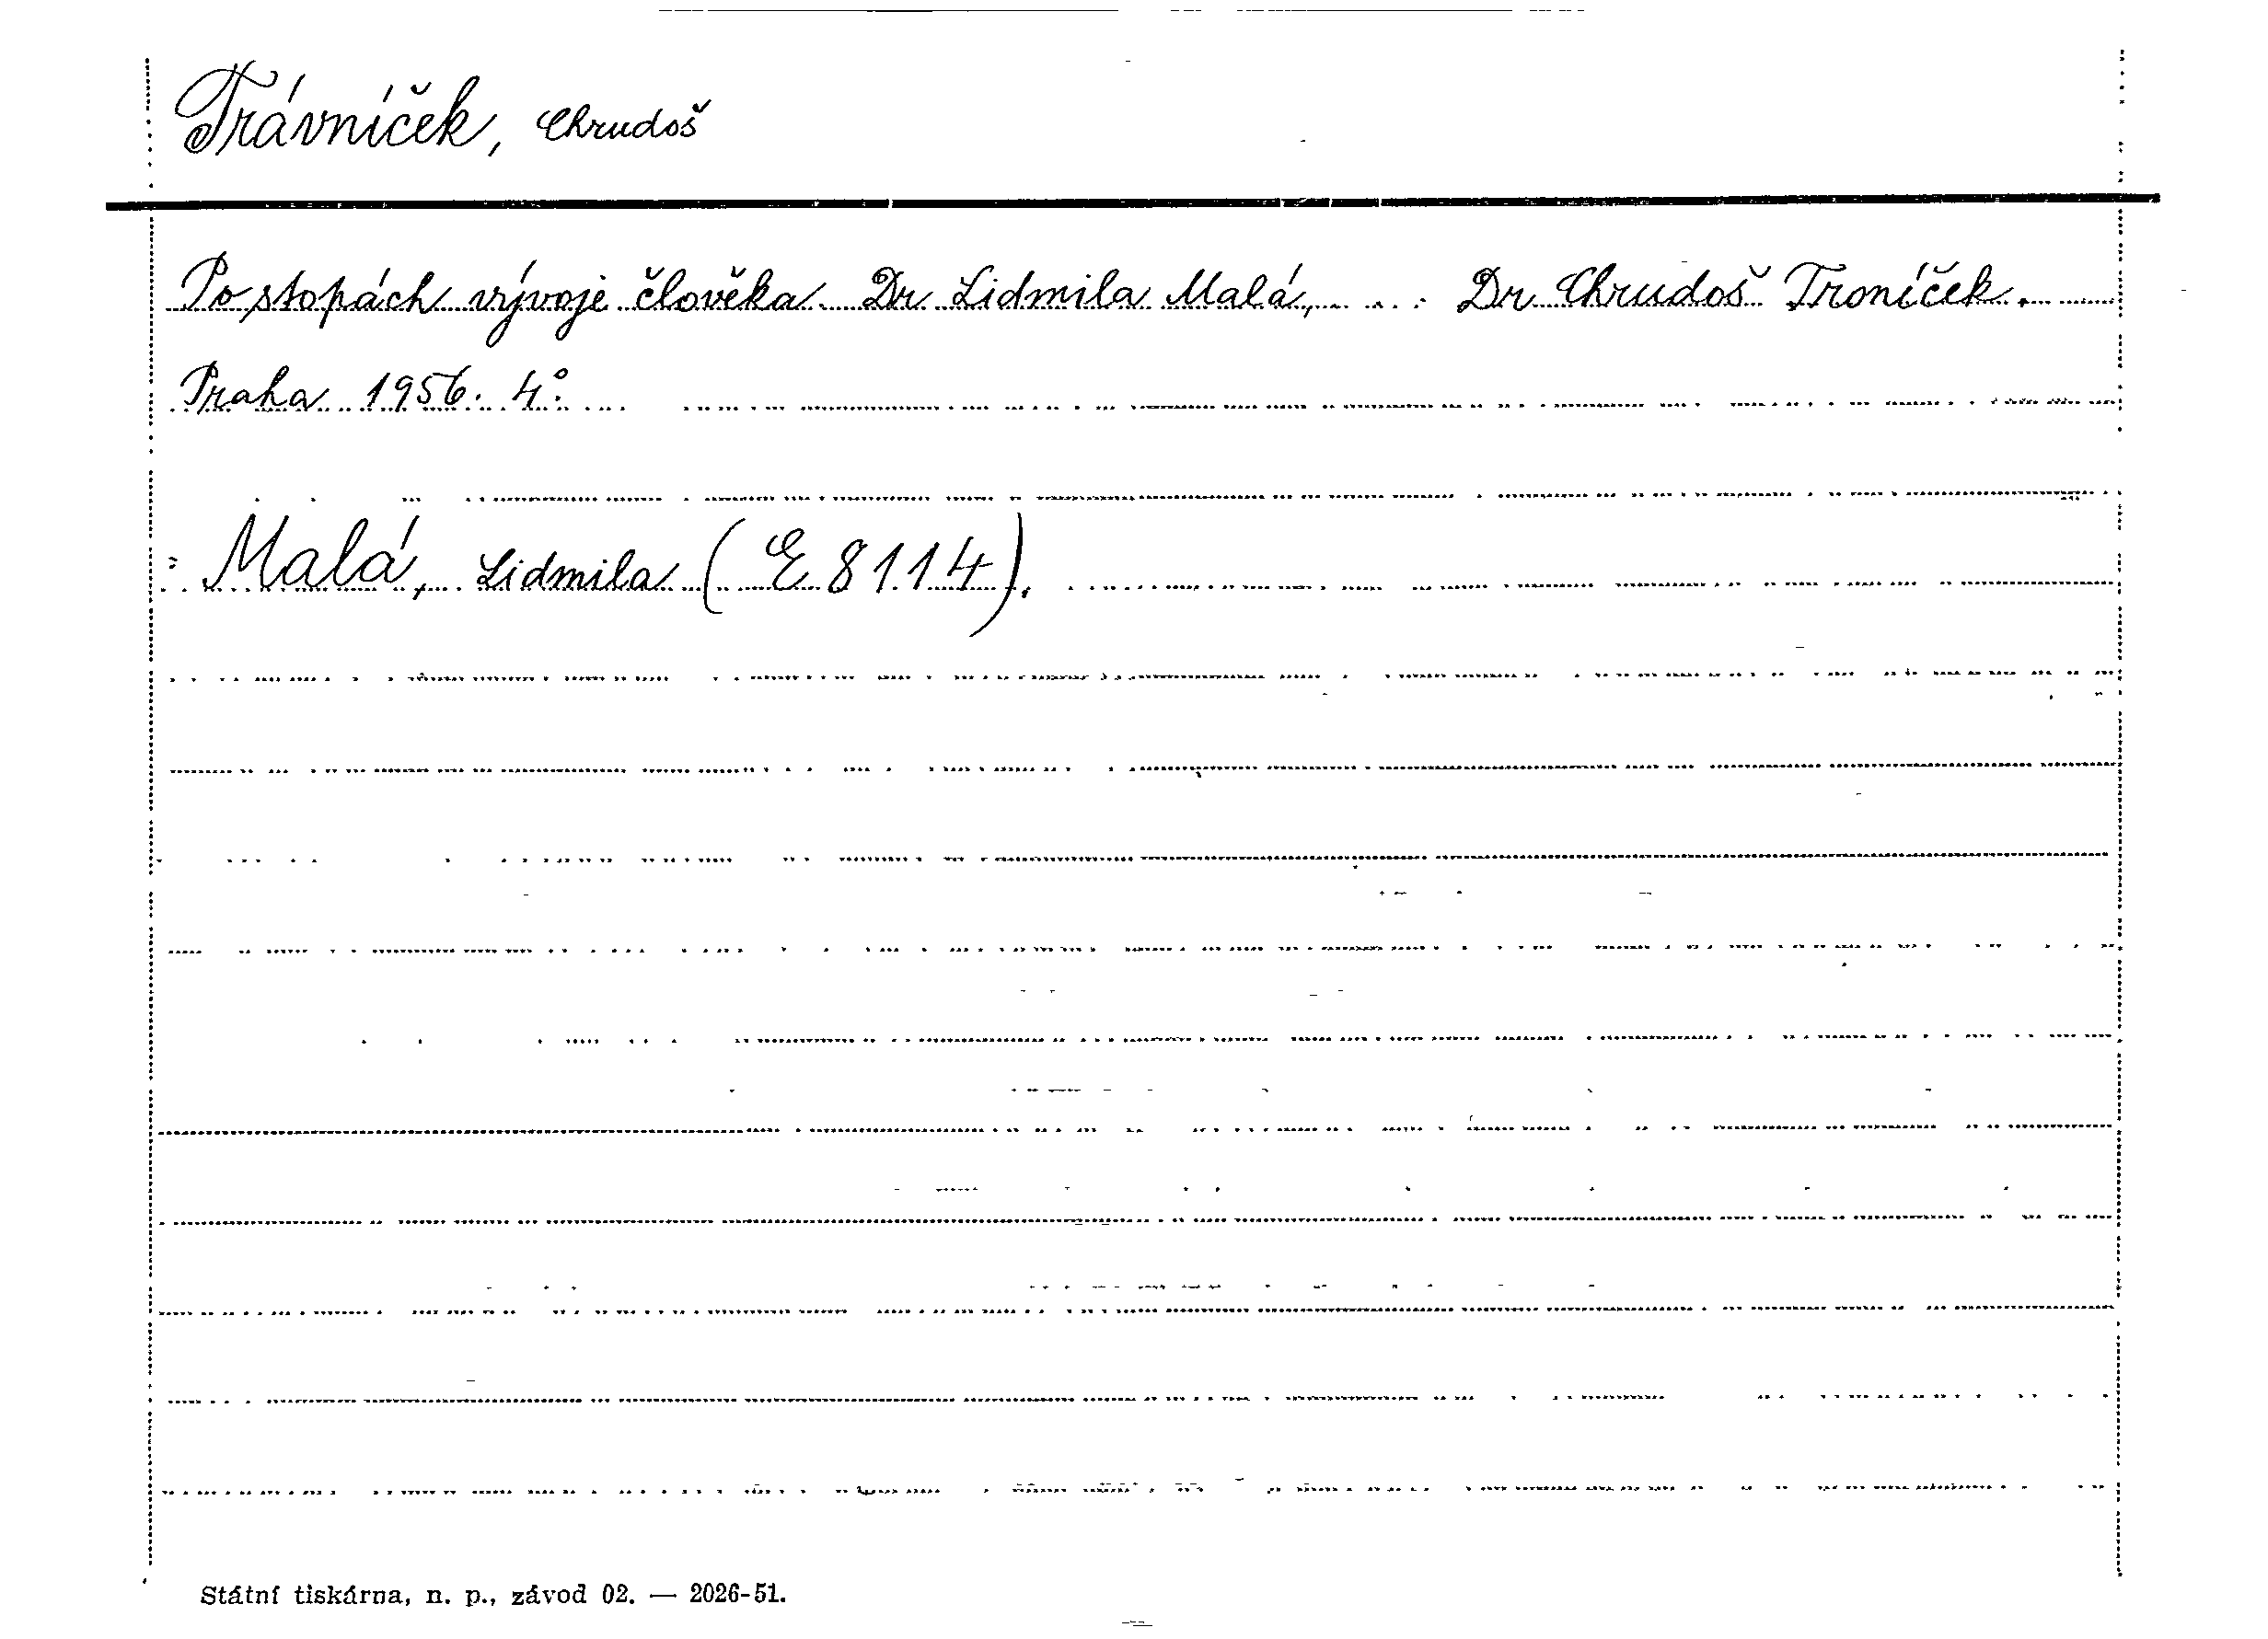 Trávníček, Chrudoš
Po stopách vývoje člověka. Dr. Lidmila Malá, ... Dr Chrudoš Troníček.
Praha 1956. 4°.
: Malá, Lidmila (E 8114).
Státní tiskárna, n. p., závod 02. — 2026-51.